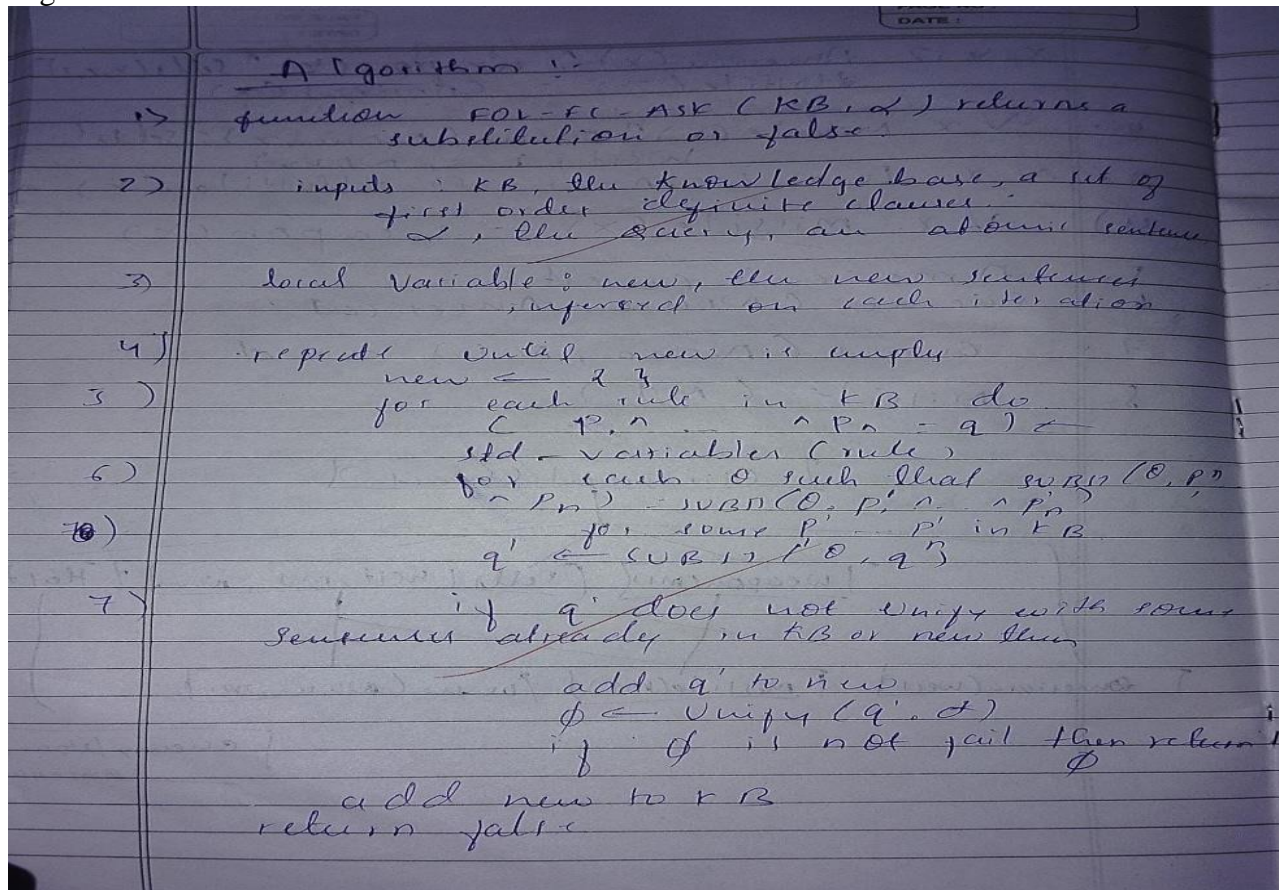 DATE :
Algorithm :-
1) function FOL-FC-ASK (KB, α) returns a
substitution or false.
2) inputs : KB, the knowledge base, a set of
first order definite clauses.
α, the query, an atomic sentence
3) local Variable : new, the new sentences
inferred on each iteration
4) repeat until new is empty
new ← { }
5) for each rule in KB do
( P, ^ ... ^ Pn = q ) ←
std - variables (rule)
6) for each θ such that SUBST (θ, P ^
^ Pn) = SUBST (θ, P' ^ .. ^ P'n)
for some P' ... P' in KB
q' ← SUBST (θ, q)
7) if q' does not unify with some
sentences already in KB or new then
add q' to new
φ ← Unify (q', α)
if φ is not fail then return
φ
add new to KB
return false